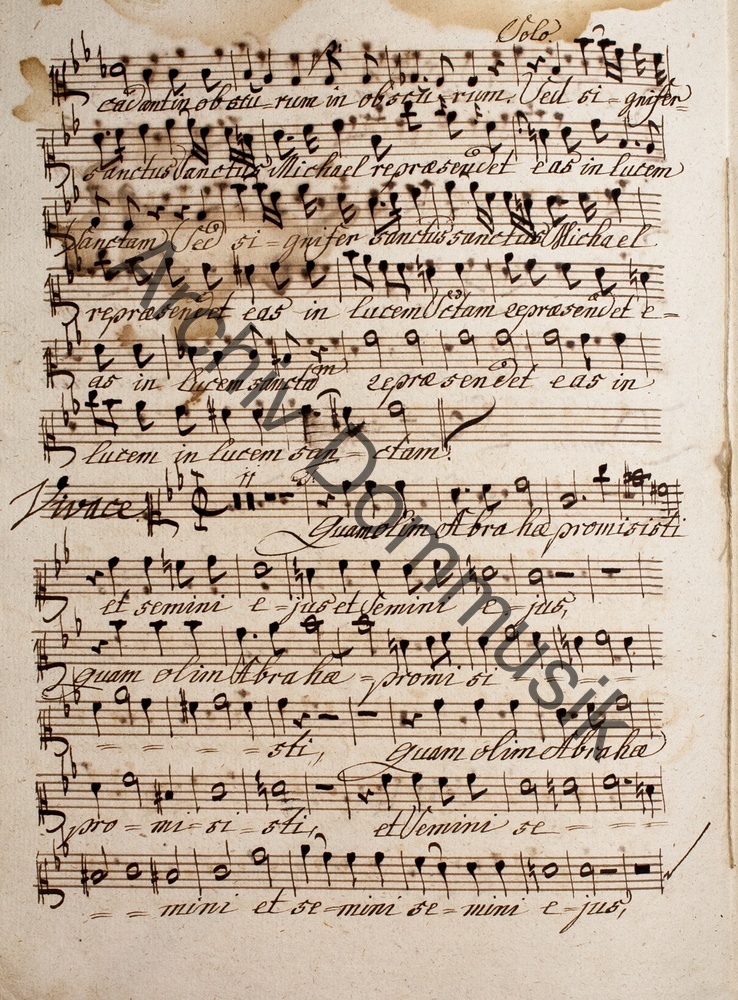 Solo.
cadant in obscu=rum in obscu=rum. Sed si=gnifer
sanctus Sanctus Michael repræsendet eas in lucem
Sanctam Sed si=gnifer sanctus sanctus Michael
repræsendet eas in lucem Sctam repræsendet e=
as in lucem sanctam repræsendet eas in
lucem in lucem san=ctam.
Vivace. 11
Quam olim Abrahæ promisisti
et semini e=jus et Semini e=jus,
quam olim Abrahæ =promi si = = =
= = = = sti, Quam olim Abrahæ
pro=mi=si=sti, et Semini se = = =
= = mini et se=mini se=mini e=jus,
Archiv Dommusik